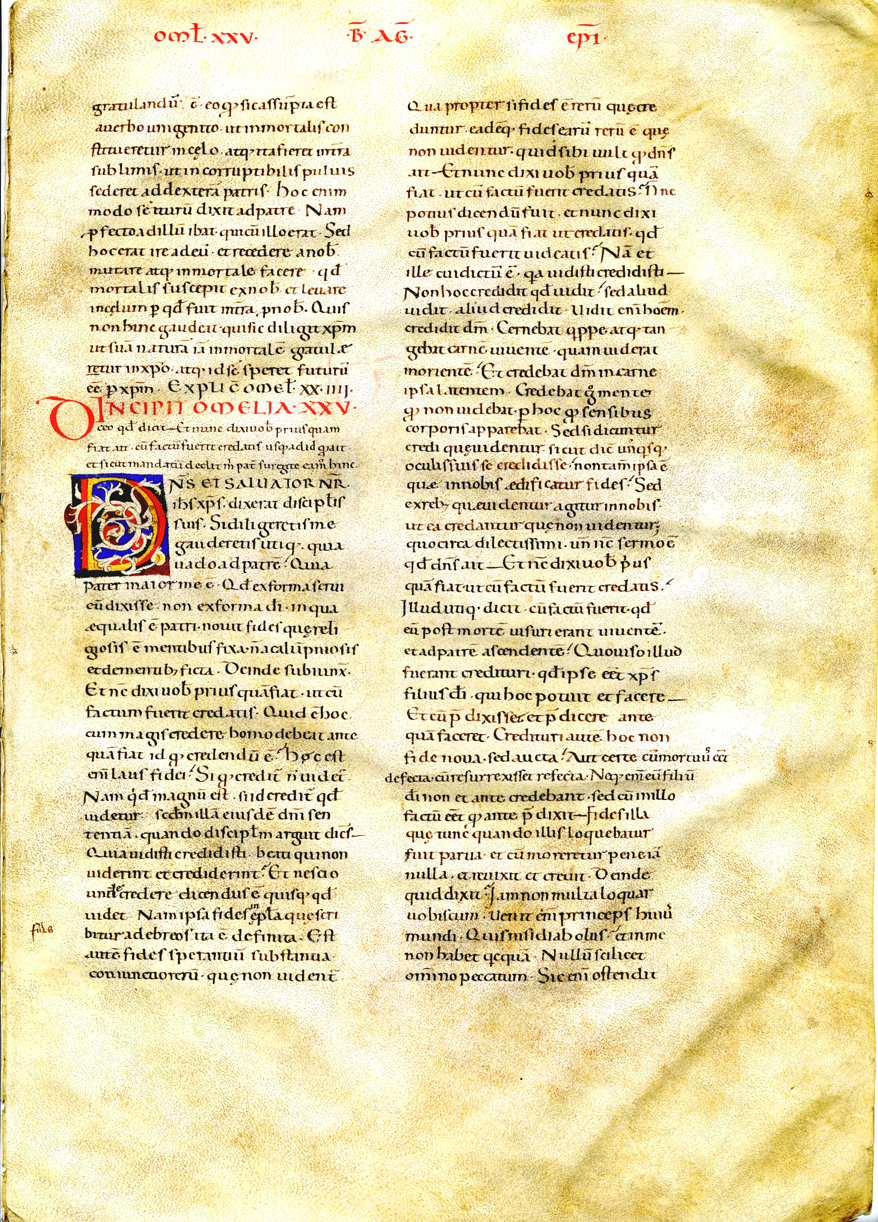 OMŁ·XXV·
B̄ AḠ·
EP̄I·
gratulandū ē· eo qđ sic assūpta est
a uerbo unigenito· ut inmortalis con
stitueretur in celo· atq; ita fieret terra
sublimis· ut incorruptibilis puluis
sederet ad dexterā patris· Hoc enim
modo se iturū dixit ad patrē· Nam
ꝓfecto ad illū ibat· qui cū illo erat· Sed
hoc erat ire ad eū· et recedere a nob̄·
mutare atq; inmortale facere· qđ
mortalis suscepit ex nob̄· et leuare
in celum p̱ qđ fuit in terra, p̱ nob̄· Quis
non hinc gaudeat· qui sic diligit xp̄m
ut suā naturā iā inmortalē gratulæ
tetur in xp̄o· atq; id se speret futurū
eē p̱ xp̄m· EXPLIC̄ OMEŁ· XX·IIII·
INCIPIT OMELIA·XXV·
D eeo qđ dicit—Et nunc dixi uob̄ priusquam
fiat· ut cū factū fuerit credatis· usq; ad id qđ ait
et sicut mandatū dedit m̄ pat̄· surgite eam̄ hinc
DN̄S ET SALUATOR NR̄·
ih̄s xp̄s· dixerat discipłis
suis· Si diligeretis me
gauderetis utiq;· quia
uado ad patrē· Quia
pater maior me ē· Qđ ex forma serui
eū dixisse· non ex forma dī· in qua
æqualis ē patri· nouit fides quę reli
giosis ē mentibus fixa· n̄ calūpniosis
et dementib; ficta· Deinde subiunx̄·
Et nc̄ dixi uob̄ prius quā fiat· ut cū
factum fuerit credatis· Quid ē hoc·
cum magis credere homo debeat ante
quā fiat id qđ credendū ē· Hoc est
enī laus fidei· Si qđ credit̄ n̄ uidet̄·
Nam qđ magnū est· si id credit̄ qđ
uidetur· scđm illā eiusdē dn̄i sen
tentiā· quando discipłm arguit dicēs—
Quia uidisti credidisti· beati qui non
uiderint et crediderint· Et nescio
undē credere dicendus ē quisq; qđ
uidet· Nam ipsa fides in epła quę scri
bitur ad ebreos ita ē definita· Est
autē fides sperantiū substantia·
conuinctio rerū· quę non uident̄·
fides
Qua propter si fides ē rerū quę cre
duntur· eadēq; fides earū rerū ē quę
non uidentur· quid sibi uult qđ dn̄s
ait—Et nunc dixi uob̄ prius quā
fiat· ut cū factū fuerit credatis· N̄ne
potius dicendū fuit· et nunc dixi
uob̄ prius quā fiat ut credatis· qđ
cū factū fuerit uideatis· Nā et
ille cui dictū ē· qa uidisti credidisti—
Non hoc credidit qđ uidit· sed aliud
uidit· aliud credidit· Uidit enī hoem·
credidit dm̄· Cernebat qppe atq; tan
gebat carnē uiuentē· quam uiderat
morientē· Et credebat dm̄ in carne
ipsa latentem· Credebat g̊ mente
qđ non uidebat· p̱ hoc qđ sensibus
corporis apparebat· Sed si dicuntur
credi quę uidentur· sicut dic̄ unqsq;
oculis suis se credidisse· non tam̄ ipsa ē
quæ in nobis ædificatur fides· Sed
ex reb; quæ uidentur agitur in nobis·
ut ea credantur quę non uidentur;
quo circa dilectissimi· un̄ nc̄ sermo ē
qđ dn̄s ait—Et nc̄ dixi uob̄ p̄us
quā fiat· ut cū factū fuerit credatis·
Illud utiq; dicit· cū factū fuerit· qđ
eū post mortē uisuri erant uiuentē·
et ad patrē ascendente· Quo uiso illud
fuerant credituri· qđ ipse eēt xp̄s
filius dī· qui hoc potuit et facere—
Et cū p̄dixisset· et p̄dicere ante
quā faceret· Credituri autē hoc non
fide noua· sed aucta· Aut certe cū mortuus eēt
defecta· cū resurrexisset refecta· Neq; enī eū filiū
dī non et ante credebant· sed cū in illo
factū eēt qđ ante p̄dixit—Fides illa
quę tunc quando illis loquebatur
fuit parua· et cū moreretur pene iā
nulla· et reuixit et creuit· Deinde
quid dixit· Iam non multa loquar
uobiscum· Uenit enī princeps huius
mundi· Quis nisi diabolus· et in me
non habet qcquā· Nullū scilicet
omīno peccatum· Sic enī ostendit